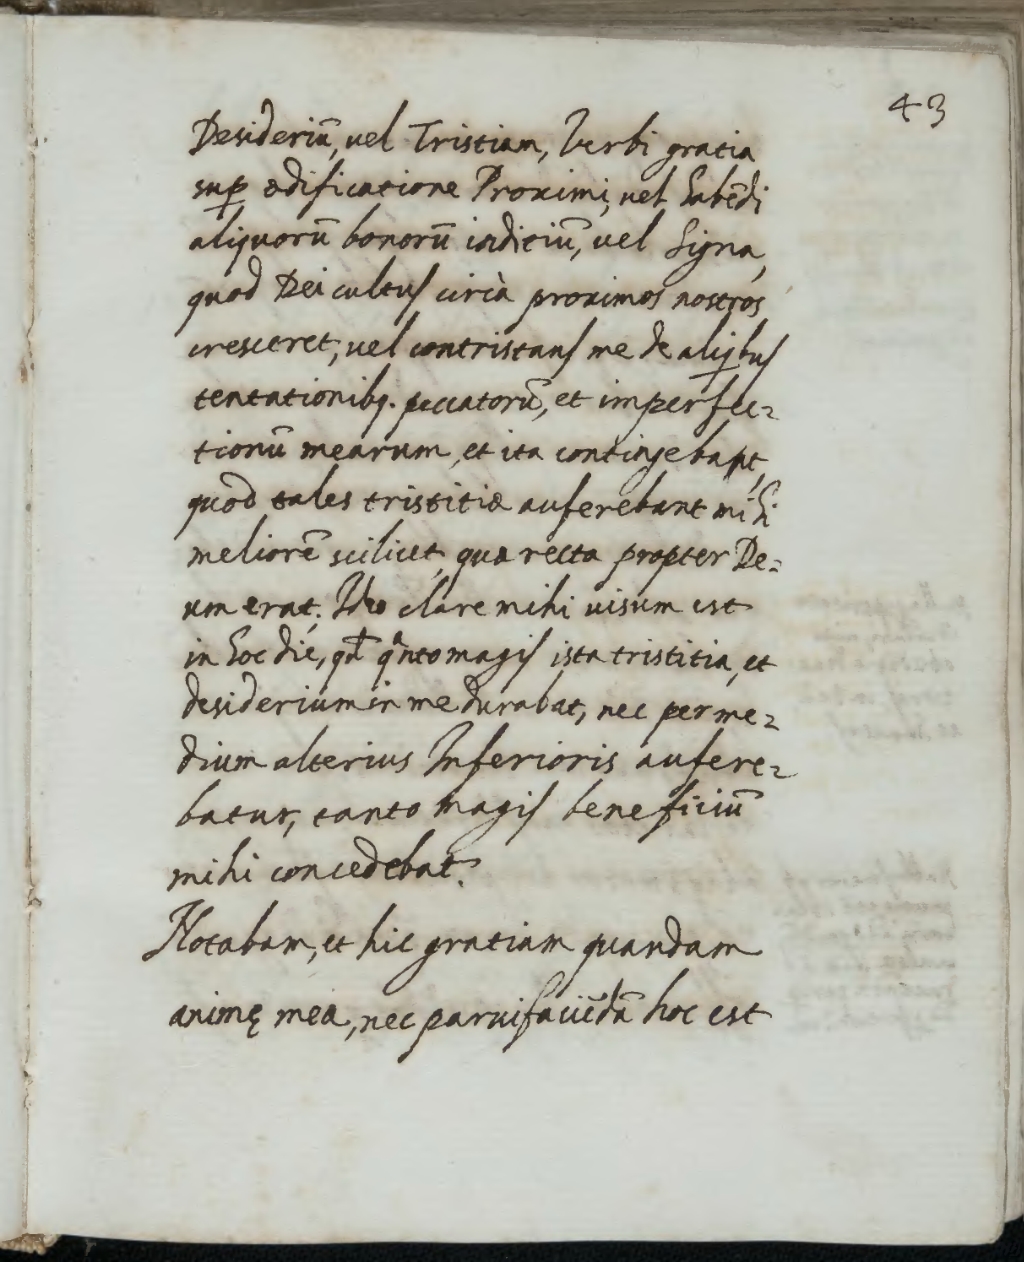 43
Desideriũ, uel Tristiam, Verbi gratia
sup̱ ædificatione Proximi, uel habẽdi
aliquorũ bonorũ inditiũ, uel signa,
quod Dei cultus circà proximos nostros
cresceret, uel contristans me de aliq̱bus
tentationibq. peccatorũ, et imperfec=
tionũ mearum, et ita contingebant,
quod tales tristitiæ auferebant mihi
meliorẽ scilicet, quæ recta propter De=
um erat. Ideo clare mihi uisum est
in hoc die, qđ qͣnto magis ista tristitia, et
desiderium in me durabat, nec per me=
dium alterius Inferioris aufere=
batur, tanto magis beneficiũ
mihi concedebat.
Notabam, et hic gratiam quandam
animę meæ, nec paruifaciẽdã hoc est